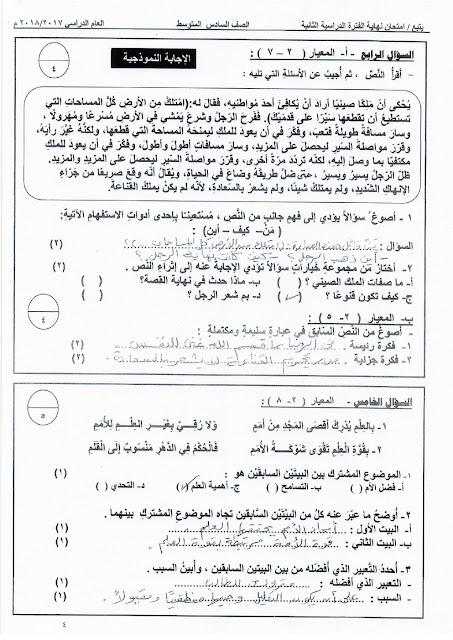 يتبع / امتحان نهاية الفترة الدراسية الثانية الصف السادس المتوسط العام الدراسي ٢٠١٨/٢٠١٧ م
السؤال الرابع - أ- المعيار ( ٢ – ٧ ) :
الإجابة النموذجية
٤
- أقرأُ النَّصَّ ، ثم أُجيبُ عن الأسئلةِ التي تليه :
يُحْكَى أنَّ مَلِكًا صينيًا أرادَ أنْ يُكافِئَ أحدَ مُواطنِيهِ، فقالَ له:(امْتَلِكْ مِنَ الأرضِ كُلَّ المِساحاتِ التي
تستطيعُ أن تقطعَها سَيْرًا على قَدميْكَ). فَفرِحَ الرَّجلُ وشرعَ يمْشي في الأرضِ مُسْرعًا ومُهرولًا ،
وسارَ مسافةً طويلةً فتعبَ، وفكّرَ في أن يعودَ للملكِ ليمنحَهُ المساحةَ التي قطعَها، ولكنَّهُ غيَّرَ رأيَهُ،
وقرّرَ مواصلةَ السّيرِ ليحصلَ على المزيدِ، وسارَ مسافاتٍ أطولَ وأطولَ، وفكّرَ في أن يعودَ للملكِ
مكتفيًا بما وصلَ إليهِ، لكنّه تردّدَ مرّةً أخرى، وقرّرَ مواصلةَ السيرِ ليحصلَ على المزيدِ والمزيدِ.
ظلَّ الرّجلُ يسيرُ ويسيرُ ، حتى ضلَّ طريقَهُ وضاعَ في الحياةِ، ويُقالُ أنّه وقعَ صريعًا من جرّاءِ
الإنهاكِ الشديدِ، ولم يمتلكْ شيئًا، ولم يشعرْ بالسّعادةِ، لأنّه لم يكنْ يملكُ القناعةَ.
١ - أصوغُ سؤالاً يؤدي إلى فهمِ جانبٍ من النَّص ، مُستَعينًا بإحدى أدواتِ الاستفهامِ الآتيةِ:
(مَنْ– كيف – أين) :
السؤال : (٢)
أين ذهب الرجل ؟ – كيف كانت نهاية الرجل ؟
٢- أختارُ من مجموعةِ خياراتٍ سؤالاً تؤدي الإجابة عنه إلى إثراءِ النص .
أ- ما صفات الملك الصيني ؟ ( ) ب- ماذا حدث في نهاية القصة؟ ( )
ج- كيف تكون قنوعًا ؟ (✓) د- بم شعر الرجل ؟ ( ) (٢)
ب- المعيار ( ٢- ٥ ) :
٤
- أصوغُ من النَّصِّ السَّابقِ في عبارةٍ سليمةٍ ومكتملةٍ :
١- فكرة رئيسة . (٢)
٢ - فكرة جزئية . (٢)
السؤال الخامس - المعيار ( ٢- ٨ ) :
٥
١- بِالعِلمِ يُدْركُ أقصَى المَجْدِ مِنْ أمَمٍ وَلا رُقِيَّ بِغَيْـرِ العِلْـمِ لِلأمَمِ
٢- بِقُوّةِ العِلْمِ تَقْوَى شَوْكَـةُ الأُمَمِ فَالْحُكْمُ فِي الدَّهْرِ مَنْسُوبٌ إلَى القَلَمِ
١- الموضوع المشترك بين البيتَيْنِ السابقَيْنِ هو : (١)
أ- فضل الأم ( ) ب- التسامح ( ) ج- أهمية العلم (✓) د- التحدي ( )
٢- أوضحُ ما عبّرَ عنه كلٌّ من البيْتَيْنِ السَّابقين تجاه الموضوعِ المشتركِ بينهما .
أ- البيت الأول : (١)
ب- البيت الثاني : (١)
٣- أُحددُ التَّعبيرَ الذي أفضلَه من بين البيتين السابقين ، وأُبينُ السبب .
- التعبير الذي أفضله : (١)
- السبب : (١)
٤